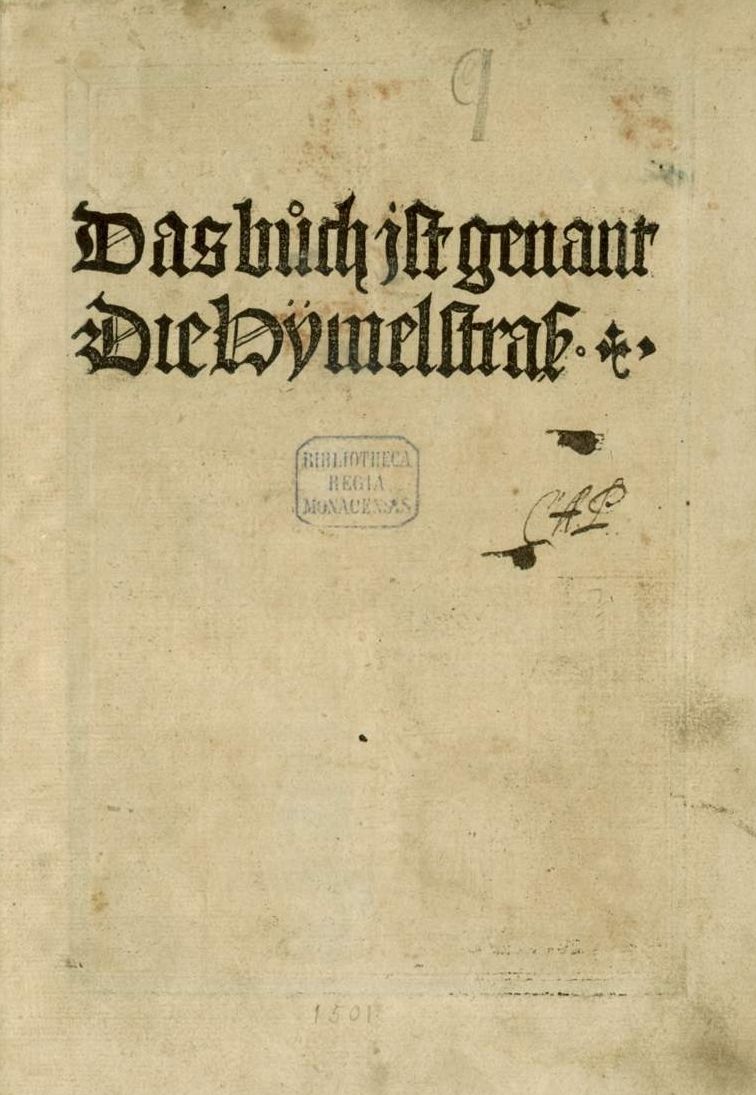 9
Das bůch jst genant
Die Hÿmelstraß.
BIBLIOTHECA
REGIA
MONACENSIS
CAP
1501